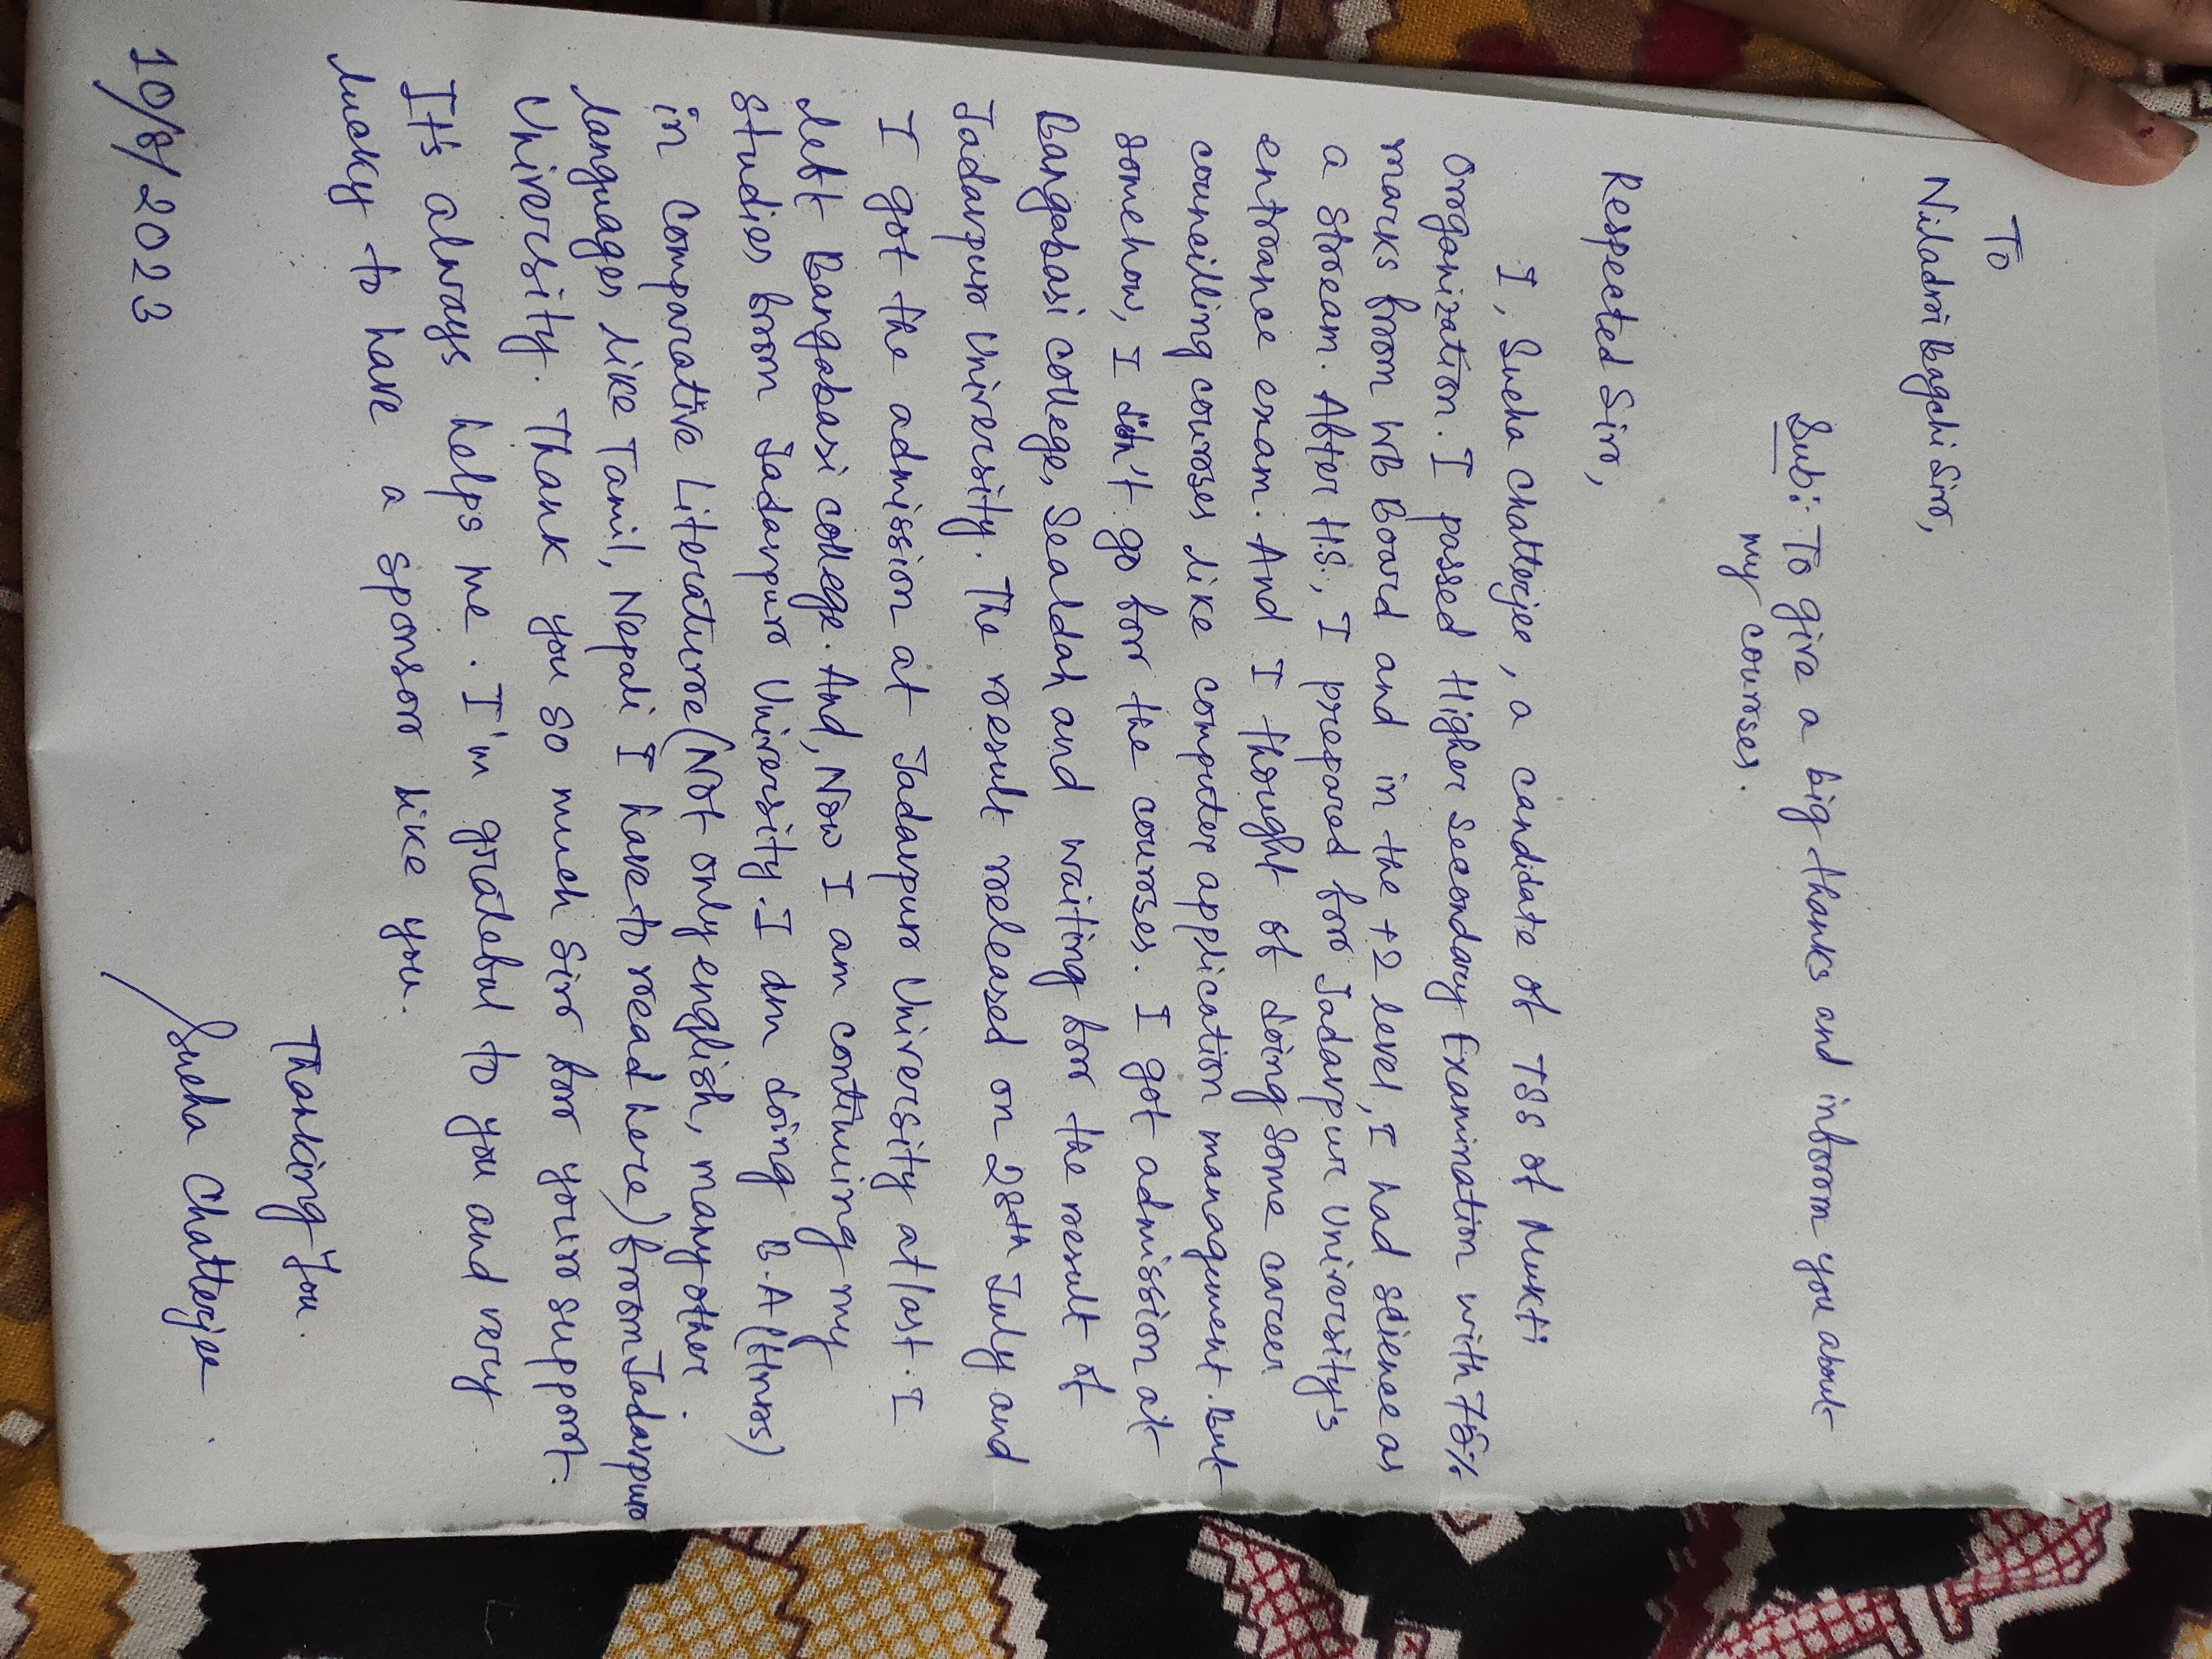 To
Niladri Bagchi Sir,
Sub: To give a big thanks and inform you about
my courses.
Respected Sir,
I, Sneha Chatterjee, a candidate of TSS of Mukti
Organization. I passed Higher Secondary Examination with 78%
marks from WB Board and in the +2 level, I had science as
a stream. After H.S., I prepared for Jadavpur University's
entrance exam. And I thought of doing some career
councilling courses like computer application management. But
somehow, I din't go for the courses. I got admission at
Bangabasi college, Sealdah and waiting for the result of
Jadavpur University. The result released on 28th July and
I got the admission at Jadavpur University at last. I
left Bangabasi college. And, Now I am continuing my
studies from Jadavpur University. I am doing B.A (Hnrs)
in Comparative Literature (Not only english, many other
languages like Tamil, Nepali I have to read here) from Jadavpur
University. Thank you so much Sir for your support.
It's always helps me. I'm grateful to you and very
lucky to have a sponsor like you.
Thanking You.
10/8/2023
Sneha Chatterjee.